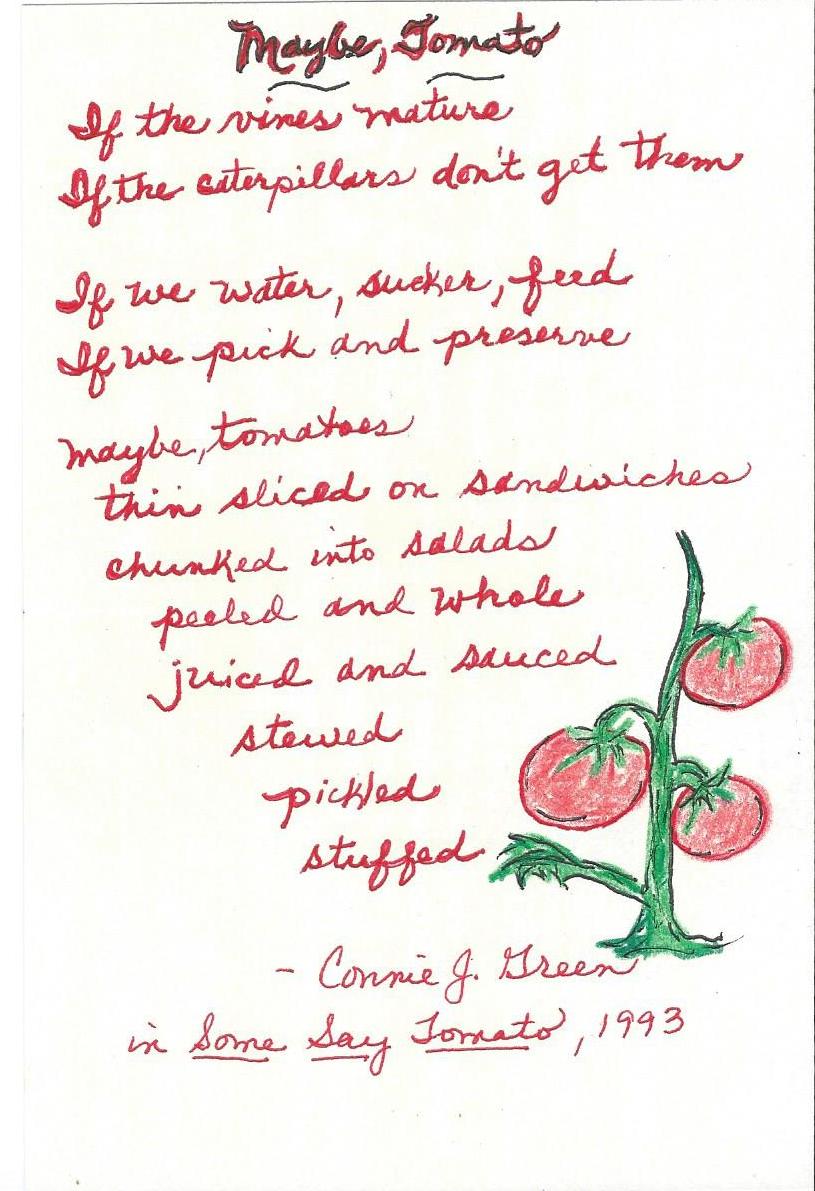 Maybe, Tomato
If the vines mature
If the caterpillars don't get them
If we water, sucker, feed
If we pick and preserve
Maybe, tomatoes
thin sliced on sandwiches
chunked into salads
peeled and whole
juiced and sauced
stewed
pickled
stuffed
- Connie J. Green
in Some Say Tomato, 1993